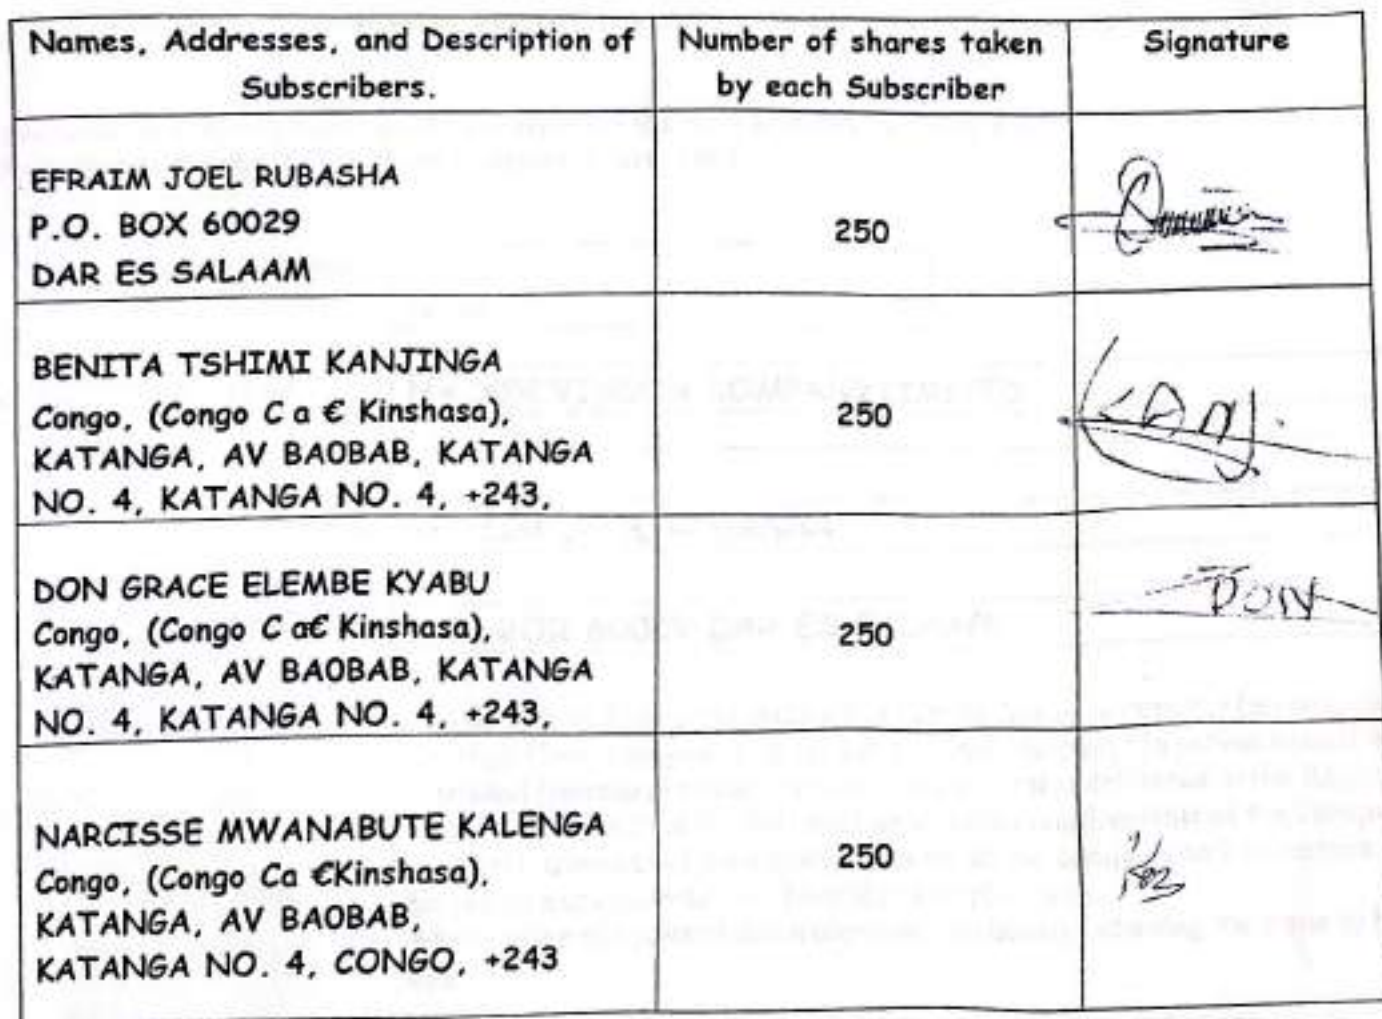 Names, Addresses, and Description of
Subscribers.
Number of shares taken
by each Subscriber
Signature
EFRAIM JOEL RUBASHA
P.O. BOX 60029
DAR ES SALAAM
250
BENITA TSHIMI KANJINGA
Congo, (Congo C a € Kinshasa),
KATANGA, AV BAOBAB, KATANGA
NO. 4, KATANGA NO. 4, +243,
250
KANJ.
DON GRACE ELEMBE KYABU
Congo, (Congo C a€ Kinshasa),
KATANGA, AV BAOBAB, KATANGA
NO. 4, KATANGA NO. 4, +243,
250
DON
NARCISSE MWANABUTE KALENGA
Congo, (Congo Ca €Kinshasa),
KATANGA, AV BAOBAB,
KATANGA NO. 4, CONGO, +243
250